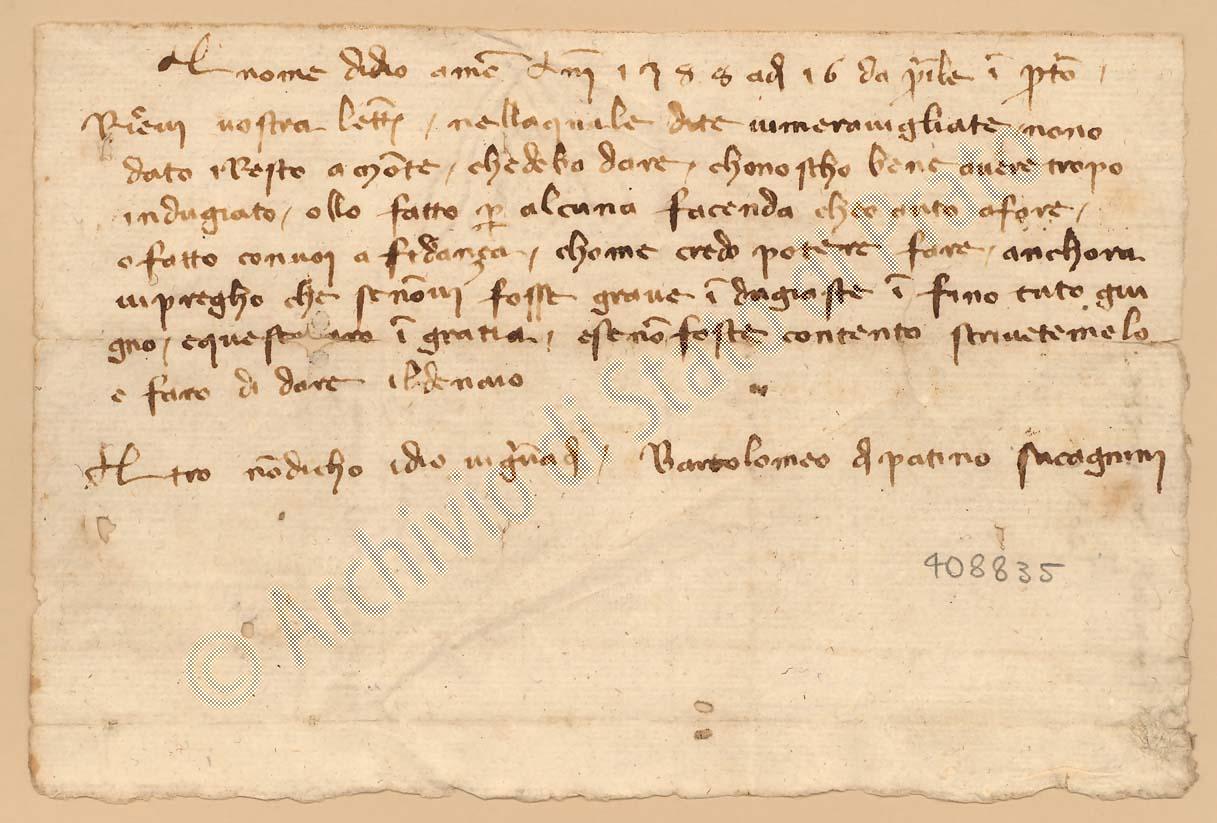 Al nome didio amē Ānī 1388 adj 16 da p̄ile ī p̄to,
Riceui uostra letter, nella quale dite uimerauigliate nono
dato iresto a mōte, chedebo dare, chonoscho bene auere tropo
indugiato, ollo fatto p alcuna facenda cheo auto a fare,
o fatto conuoi a fidanza, chome credo potere fare, anchora
uipregho che senōui fosse graue īdugiaste īfino tuto giu
gno, e questo aro ī gratia, e senō foste contento scriuetemelo
e faro di dare ildenaio
Altro nōdicho idio ui ghuardj, Bartolomeo di patino sacagnini
408835
© Archivio di Stato di Prato